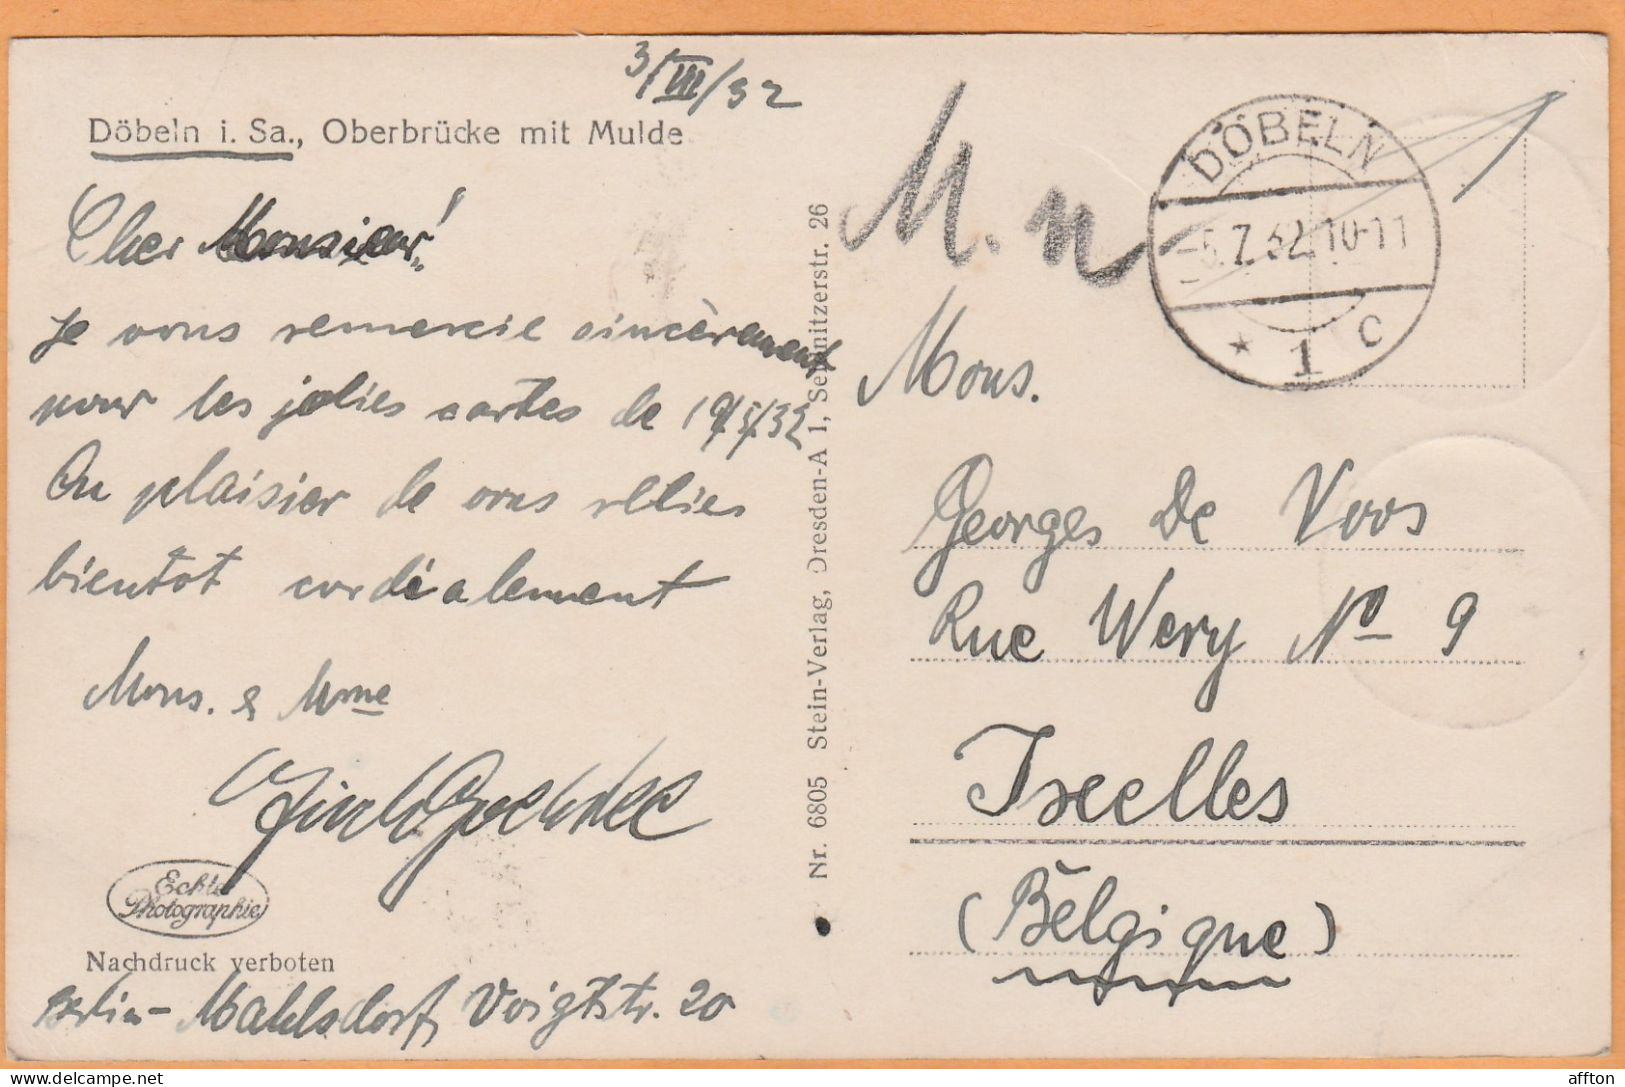 3/VII/32
Döbeln i. Sa., Oberbrücke mit Mulde
Cher Monsieur!
Je vous remercie sincèrement
pour les jolies cartes de 19/5/32
Au plaisier de vous relies
bientot cordialement
Mons. & Mme
Echte
Photographie
Nachdruck verboten
Berlin-Mahlsdorf, Voigtstr. 20
Nr. 6805 Stein-Verlag, Dresden-A 1, Sebnitzerstr. 26
M. n
DÖBELN
-5.7.32.10-11
* 1 c
Mons.
Georges De Voos
Rue Wery No 9
Ixelles
(Belgique)
affton